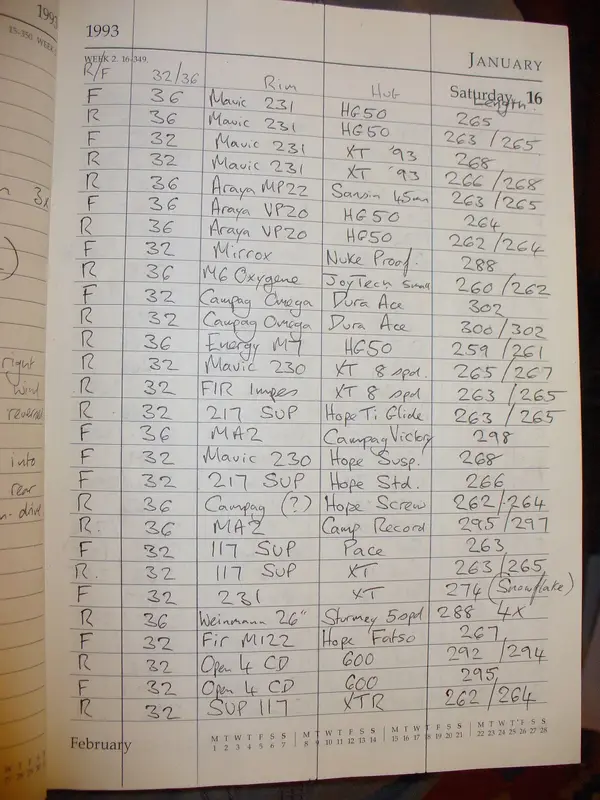 1993
15-350 WEEK
1993
WEEK 2. 16-349.
JANUARY
Saturday 16
R/F 32/36 Rim Hub Length
F 36 Mavic 231 HG50 265
R 36 Mavic 231 HG50 263/265
F 32 Mavic 231 XT '93 268
R 32 Mavic 231 XT '93 266/268
R 36 Araya MP22 Sansin 45mm 263/265
F 36 Araya VP20 HG50 264
R 36 Araya VP20 HG50 262/264
F 32 Mirrox Nuke Proof. 288
R 36 M6 Oxygene JoyTech small 260/262
F 32 Campag Omega Dura Ace 302
R 32 Campag Omega Dura Ace 300/302
R 36 Energy M7 HG50 259/261
R 32 Mavic 230 XT 8 spd. 265/267
R 32 FIR Impes XT 8 spd 263/265
R 32 217 SUP Hope Ti Glide 263/265
F 36 MA2 Campag Victory 298
F 32 Mavic 230 Hope Susp. 268
F 32 217 SUP Hope Std. 266
R 36 Campag (?) Hope Screw 262/264
R. 36 MA2 Camp Record 295/297
F 32 117 SUP Pace 263
R. 32 117 SUP XT 263/265
F 32 231 XT 274 (Snowflake)
R 36 Weinmann 26" Sturmey 5spd 288 4x
F 32 Fir M122 Hope Fatso 267
R 32 Open 4 CD 600 292/294
F 32 Open 4 CD 600 295
R 32 SUP 117 XTR 262/264
February
M T W T F S S M T W T F S S M T W T F S S M T W T F S S
1 2 3 4 5 6 7 8 9 10 11 12 13 14 15 16 17 18 19 20 21 22 23 24 25 26 27 28
right
wind
reversed
into
rear
drive